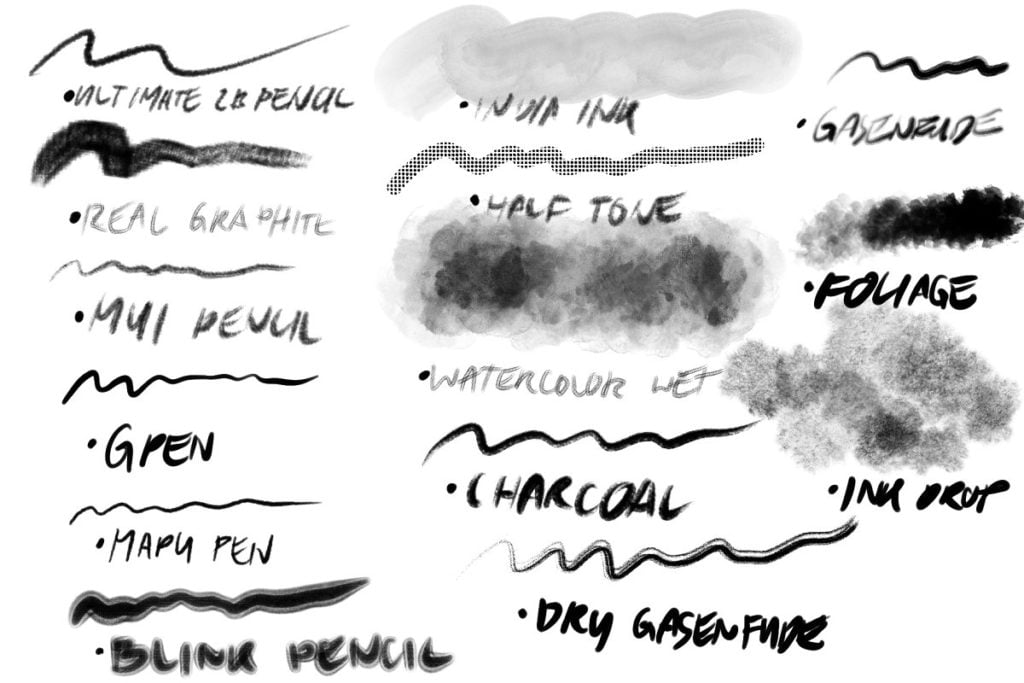 •ULTIMATE 2B PENCIL
•REAL GRAPHITE
•MUI PENCIL
•GPEN
•MAPU PEN
•BLINK PENCIL
•INDIA INK
•HALF TONE
•WATERCOLOR WET
•CHARCOAL
•DRY GASENFUDE
•GASENFUDE
•FOLIAGE
•INK DROP